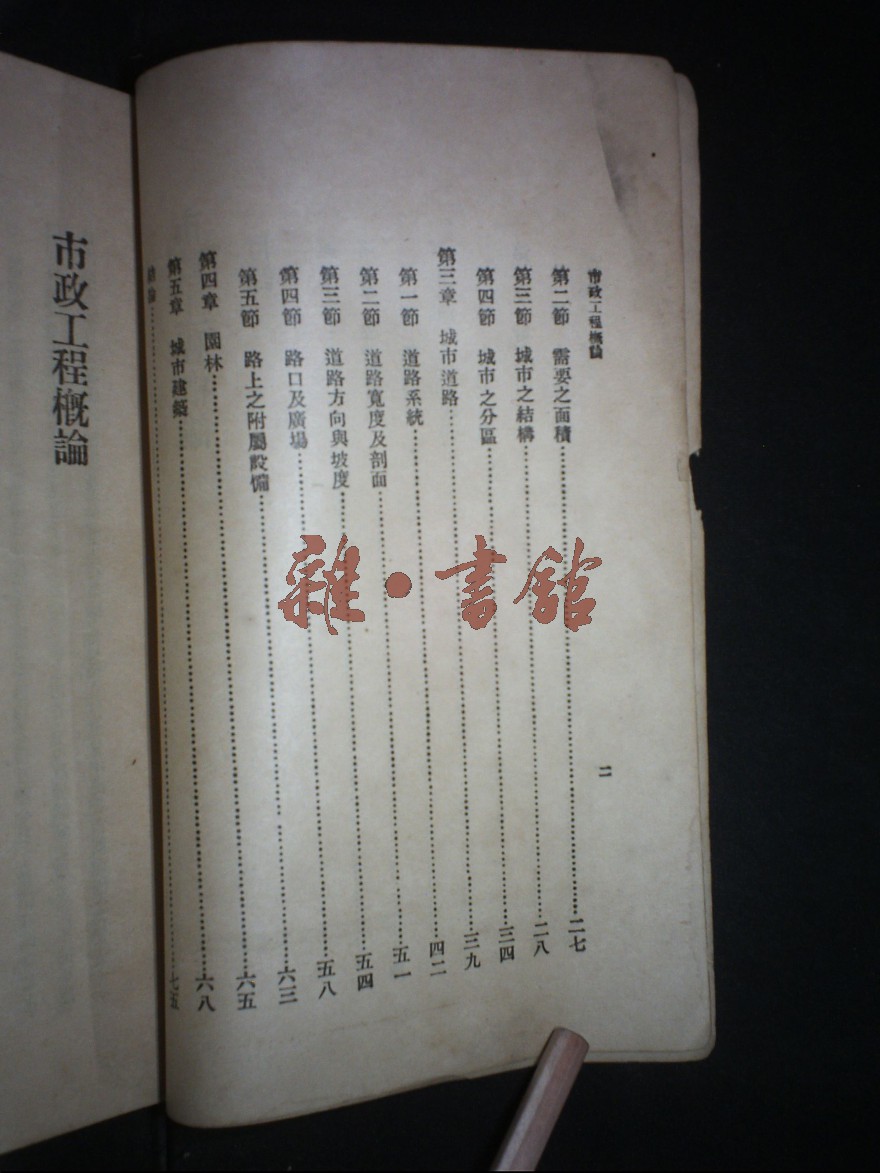 市政工程概論
二
第二節 需要之面積……二七
第三節 城市之結構……二八
第四節 城市之分區……三四
第三章 城市道路……三九
第一節 道路系統……四二
第二節 道路寬度及剖面……五一
第三節 道路方向與坡度……五四
第四節 路口及廣場……五八
第五節 路上之附屬設備……六三
第四章 園林……六五
第五章 城市建築……六八
結論……七五
市政工程概論
雜·書館